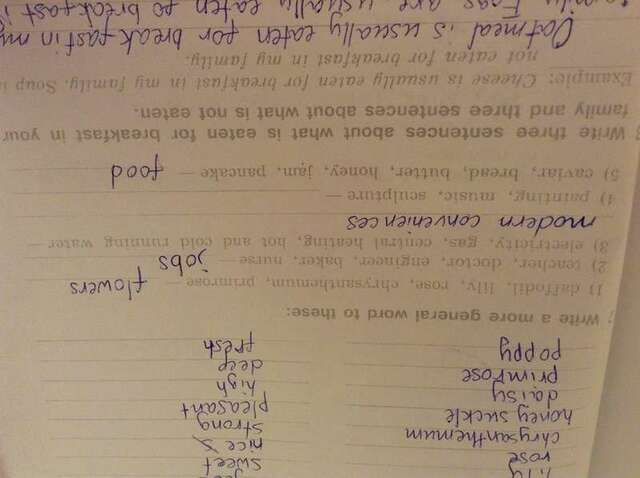 rose
chrysanthemum
honey suckle
daisy
primrose
poppy
sweet
nice
strong
pleasant
high
deep
fresh
Write a more general word to these:
1) daffodil, lilly, rose, chrysanthemum, primrose — flowers
2) teacher, doctor, engineer, baker, nurse — jobs
3) electricity, gas, central heating, hot and cold running water —
modern conveniences
4) painting, music, sculpture —
5) caviar, bread, butter, honey, jam, pancake — food
Write three sentences about what is eaten for breakfast in your
family and three sentences about what is not eaten.
Example: Cheese is usually eaten for breakfast in my family. Soup is
not eaten for breakfast in my family.
Oatmeal is usually eaten for breakfast in my
family. Eggs are usually eaten fo breakfast i